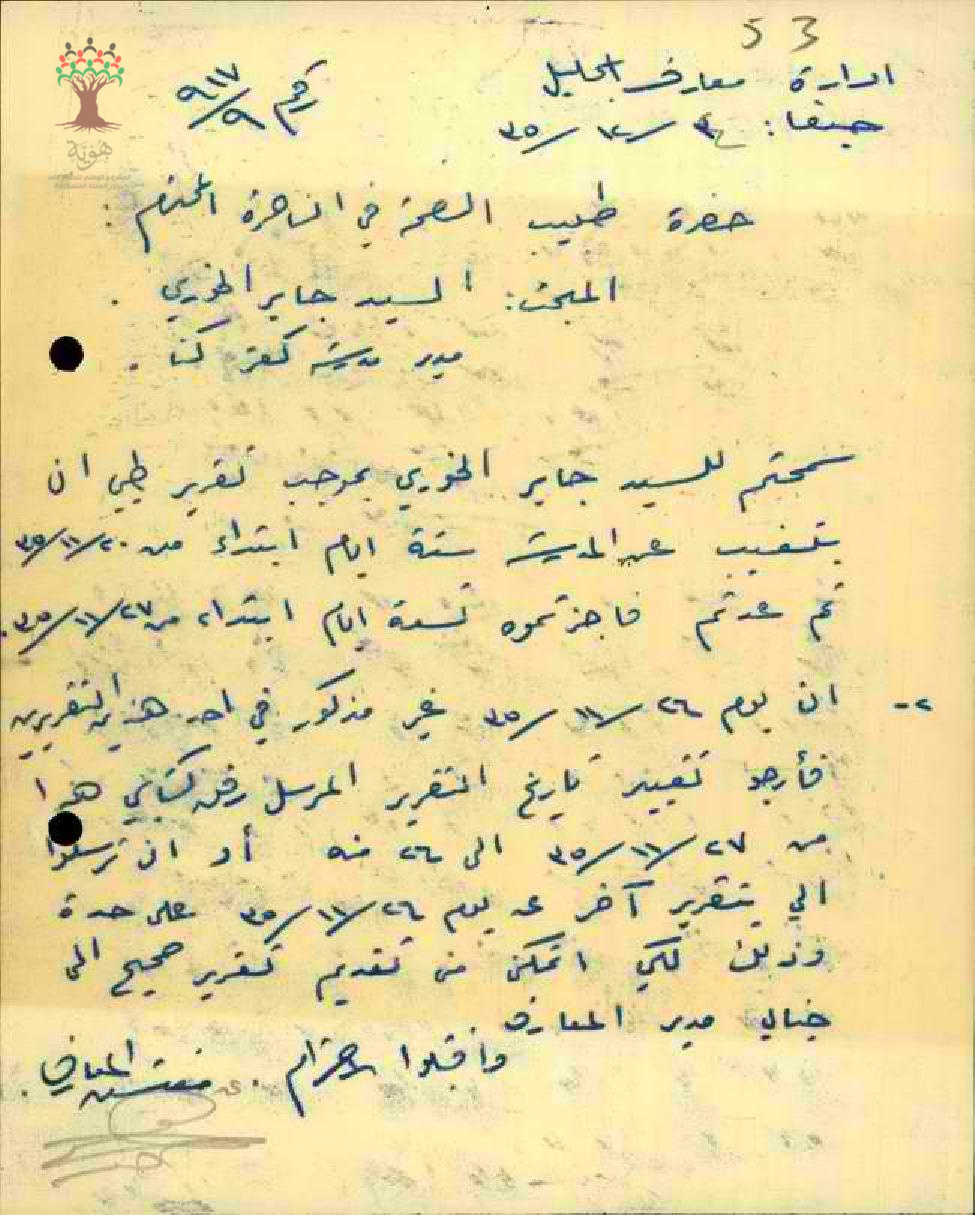 53
ادارة معارف الجليل
رقم ٩١٧/٩
حيفا: /١٢/٣٥
هوية
حضرة طبيب الصحة في الناصرة المحترم :
المبحث: السيد جابر الخوري .
مدير مدرسة كفر كنا .
سمحتم للسيد جابر الخوري بموجب تقرير طبي ان
يتغيب عن المدرسة ستة ايام ابتداء من ٢٠/١١/٣٥
ثم عدتم فاجزتموه تسعة ايام ابتداء من ٢٧/١١/٣٥.
٢- ان يوم ٢٦/١١/٣٥ غير مذكور في احد هذين التقريرين
فأرجو تغيير تاريخ التقرير المرسل رفق كتابي هذا
من ٢٧/١١/٣٥ الى ٢٦ منه أو ان ترسلوا
الي بتقرير آخر عن يوم ٢٦/١١/٣٥ على حدة
وذلك لكي اتمكن من تقديم تقرير صحيح الى
جناب مدير المعارف
واقبلوا الاحترام .
عن مفتش المعارف .